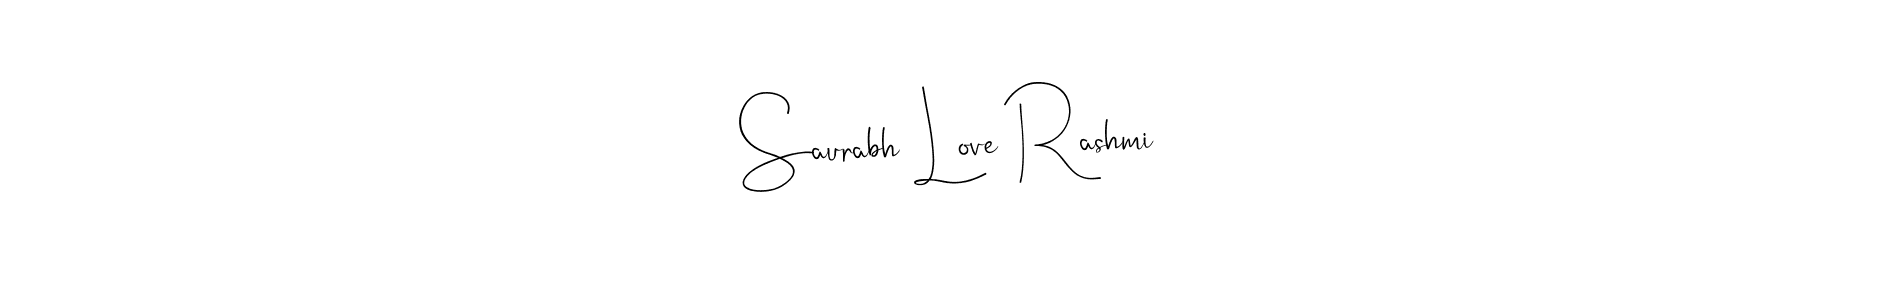 Saurabh Love Rashmi